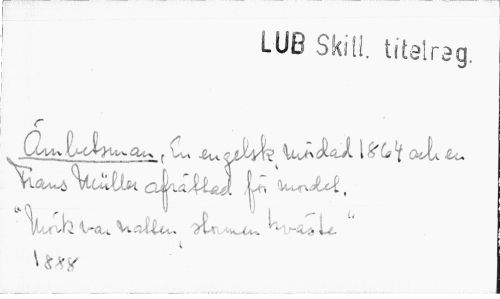 LUB Skill. titelreg.
Ämbetsman, En engelsk, mördad 1864 och en
Frans Müller afrättad för mordet.
"Mörk var natten, stormen hväste"
1888